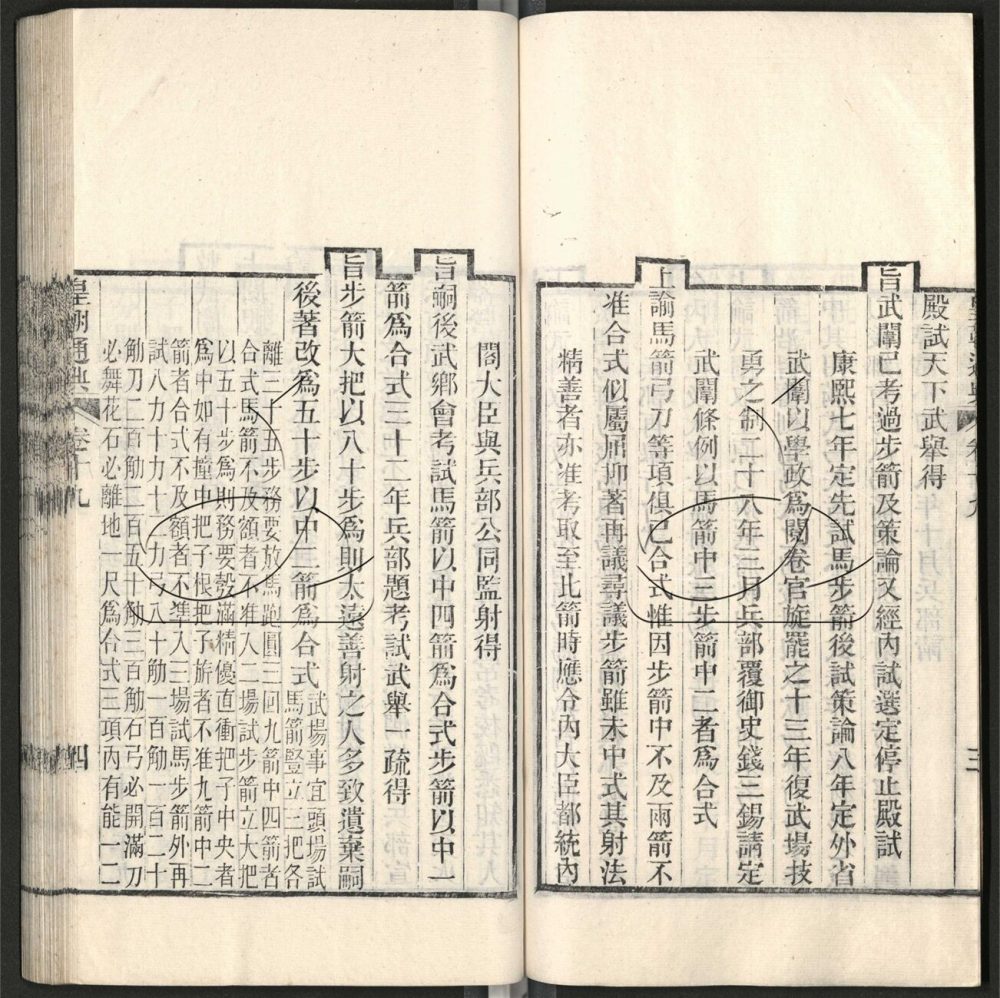 殿試天下武舉得
旨武闈已考過步箭及策論又經內試選定停止殿試
康熙七年定先試馬步箭後試策論八年定外省
武闈以學政為閱卷官旋罷之十三年復武場技
勇之制二十八年三月兵部覆御史錢三錫請定
武闈條例以馬箭中三步箭中二者為合式
上諭馬箭弓刀等項俱已合式惟因步箭中不及兩箭不
准合式似屬屈抑著再議尋議步箭雖未中式其射法
精善者亦准考取至此箭時應令內大臣都統內
閣大臣與兵部公同監射得
旨嗣後武鄉會考試馬箭以中四箭為合式步箭以中二
箭為合式三十二年兵部題考試武舉一疏得
旨步箭大把以八十步為則太遠善射之人多致遺棄嗣
後著改為五十步以中三箭為合式
武場事宜頭場試
馬箭豎立三把各
離三十五步務要放馬跑圓三回九箭中四箭者
合式馬箭不及額者不准入二場試步箭立大把
以五十步為則務要彀滿精優直衝把子中央者
為中如有撞中把子根把子旂者不准九箭中二
箭者合式不及額者不準入三場試馬步箭外再
試八力十力十二力弓八十觔一百觔一百二十
觔刀二百觔二百五十觔三百觔石弓必開滿刀
必舞花石必離地一尺為合式三項內有能一二
皇朝通典 卷十九
四
三